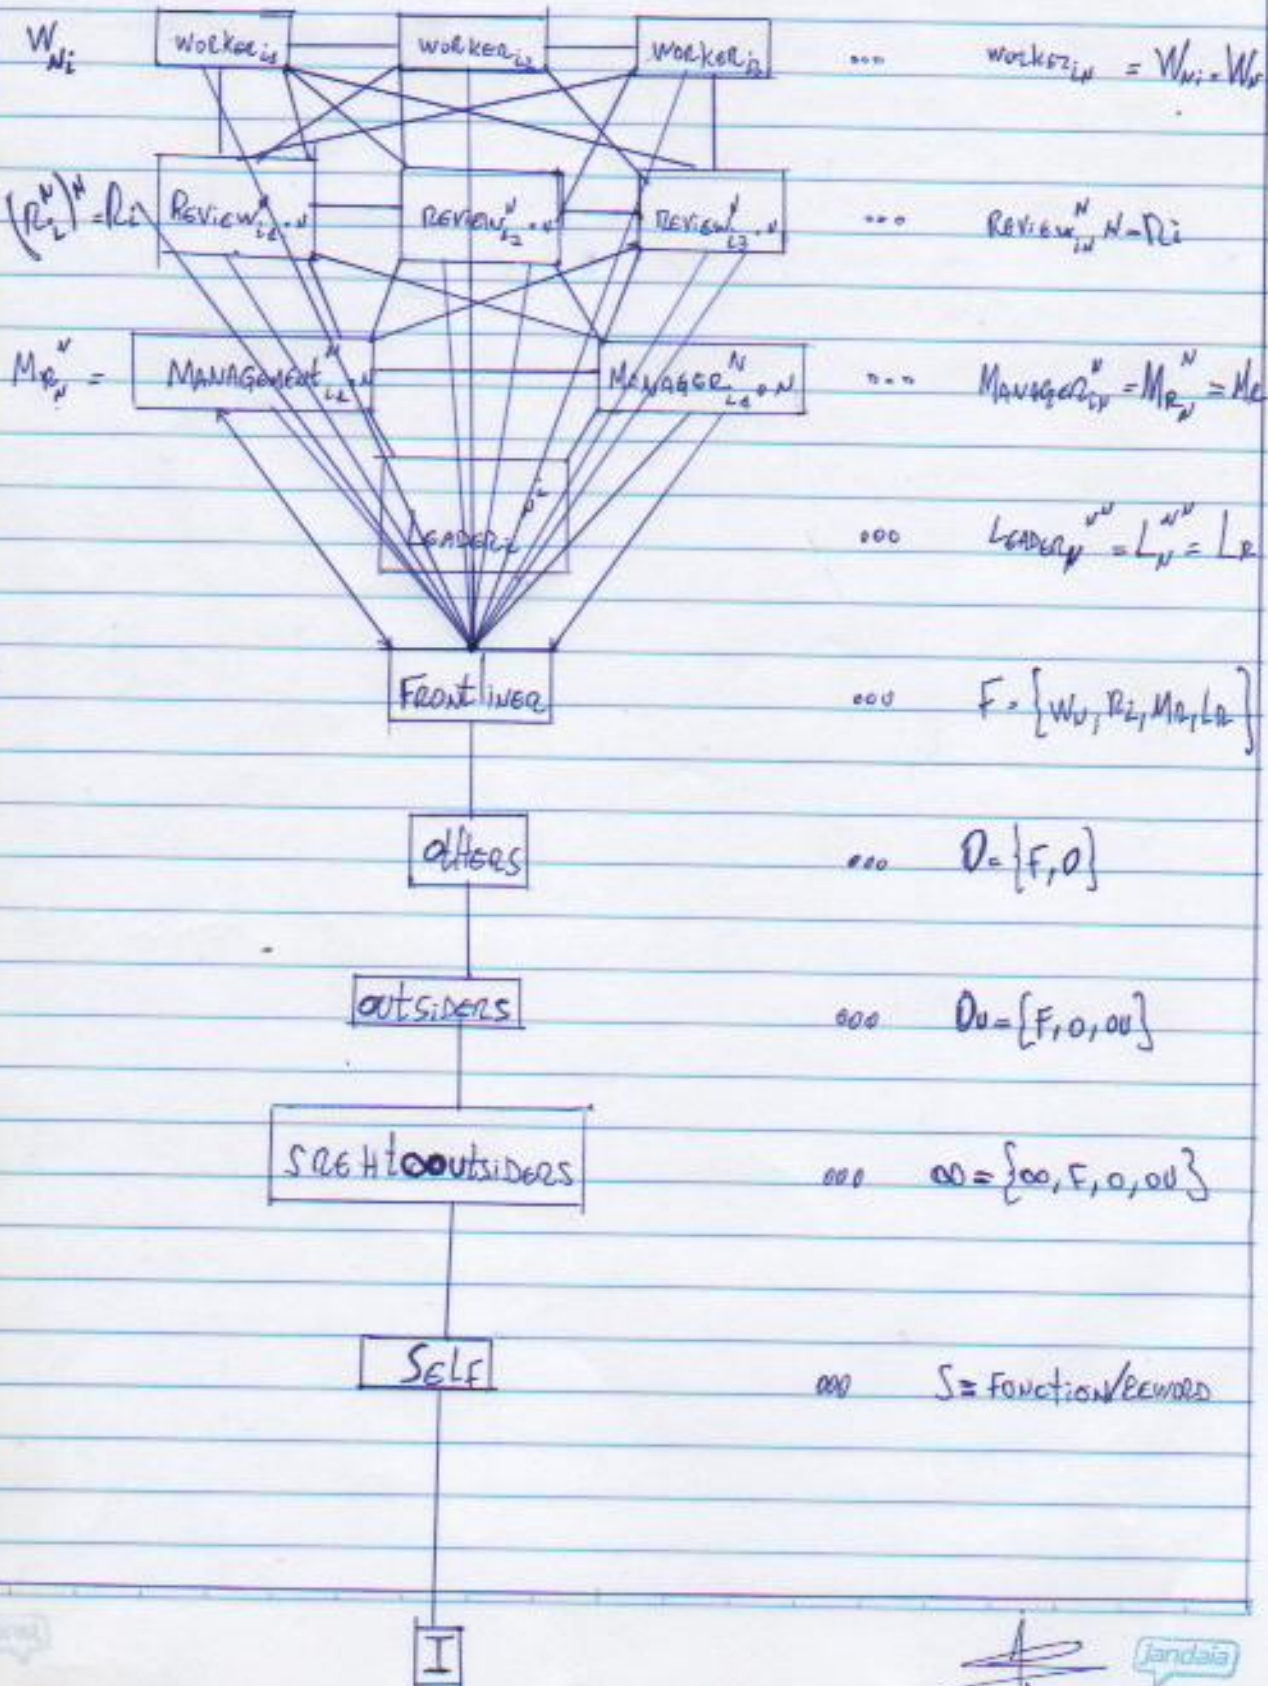 W_Ni WORKER_i1 WORKER_i2 WORKER_i3 ... WORKER_iN = W_Ni = W_N
(R_i^N)^N = Ri REVIEW_i1^N · N REVIEW_i2^N · N REVIEW_i3^N · N ... REVIEW_iN^N N = Ri
M_R_N^N = MANAGEMENT_i1^N · N MANAGER_i1^N · N ... MANAGER_iN^N = M_R_N^N = MR
LEADER_i ... LEADER_N^N^N = L_N^N^N = LR
FRONtLINER ... F = {W_N, Ri, MR, LR}
OtHERS ... O = {F, O}
OUtSiDERS ... OU = {F, O, OU}
SREHtOOUtSiDERS ... OO = {OO, F, O, OU}
SELF ... S = FONCtiON/REWORD
I
jandaia